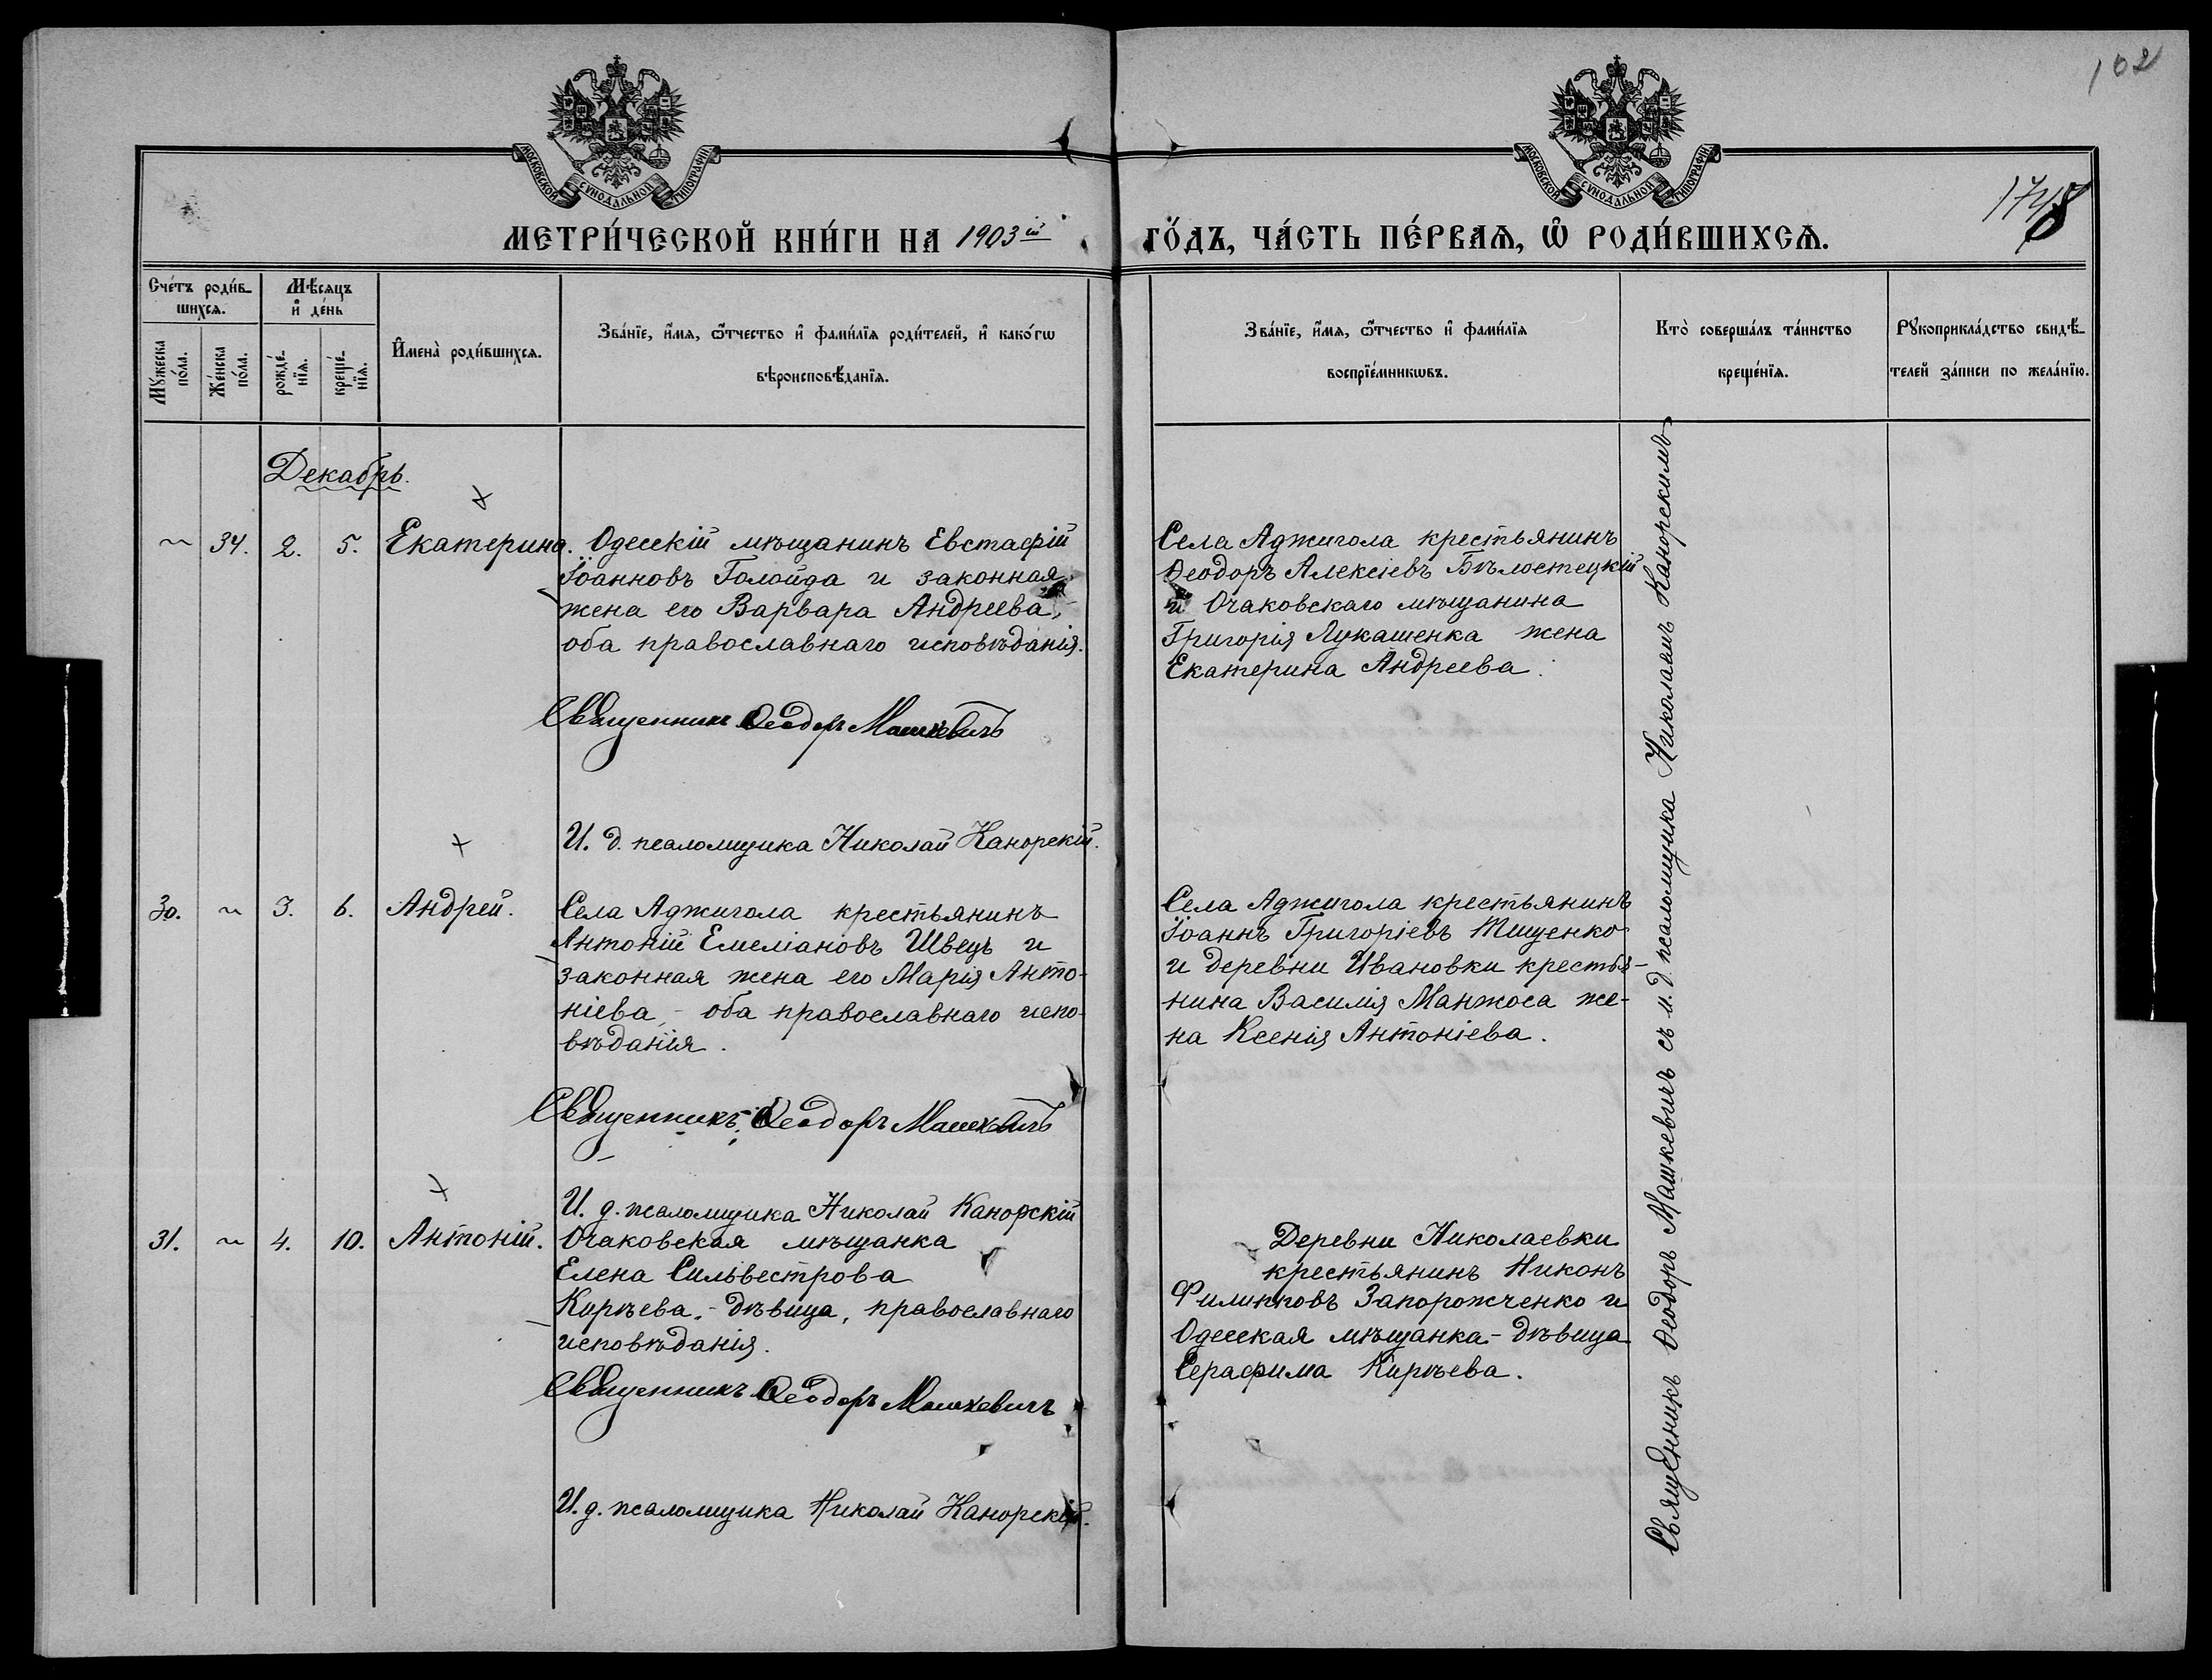 102
МОСКОВСКОЙ СУНОДАЛЬНОЙ ТИПОГРАФІИ
МОСКОВСКОЙ СУНОДАЛЬНОЙ ТИПОГРАФІИ
МЕТРИ́ЧЕСКОЙ КНИ́ГИ НА 1903ій
ГО́ДЪ, ЧА́СТЬ ПЕ́РВАЯ, Ѡ҆ РОДИ́ВШИХСЯ.
Сче́тъ роди́в-
шихся.
Мѣ́сяцъ
и҆ де́нь
Мꙋ́жеска
по́ла.
Же́нска
по́ла.
рожде́-
нїя.
креще́-
нїя.
И҆мена̀ роди́вшихся.
Зва́нїе, и҆́мя, ѻ҆́тчество и҆ фами́лїя роди́телей, и҆ како́гѡ
вѣроисповѣ́данїя.
Зва́нїе, и҆́мя, ѻ҆́тчество и҆ фами́лїя
воспрїе́мникѡвъ.
Кто̀ соверша́лъ та́инство
креще́нїя.
Рꙋкоприкла́дство свидѣ́-
телей за́писи по жела́нїю.
Декабрь.
~ 34. 2. 5. Екатерина.
Одесскій мѣщанинъ Евстафій
Іоанновъ Голойда и законная
жена его Варвара Андреева,
оба православнаго исповѣданія.
Священникъ Ѳеодоръ Машкевичъ
И. д. псаломщика Николай Канорскій.
Села Аджигола крестьянинъ
Ѳеодоръ Алексіевъ Бѣлостецкій
и Очаковскаго мѣщанина
Григорія Лукашенка жена
Екатерина Андреева.
30. ~ 3. 6. Андрей.
Села Аджигола крестьянинъ
Антоній Емеліановъ Швецъ и
законная жена его Марія Анто-
ніева, - оба православнаго испо-
вѣданія.
Священникъ Ѳеодоръ Машкевичъ
И. д. псаломщика Николай Канорскій
Села Аджигола крестьянинъ
Іоаннъ Григоріевъ Тищенко
и деревни Ивановки крестья-
нина Василія Манжоса же-
на Ксенія Антоніева.
31. ~ 4. 10. Антоній.
Очаковская мѣщанка
Елена Сильвестрова
Кирѣева, - дѣвица, православнаго
исповѣданія.
Священникъ Ѳеодоръ Машкевичъ
И. д. псаломщика Николай Канорскій.
Деревни Николаевки
крестьянинъ Никонъ
Филипповъ Запорожченко и
Одесская мѣщанка - дѣвица
Серафима Кирѣева.
Священникъ Ѳеодоръ Машкевичъ съ и. д. псаломщика Николаемъ Канорскимъ